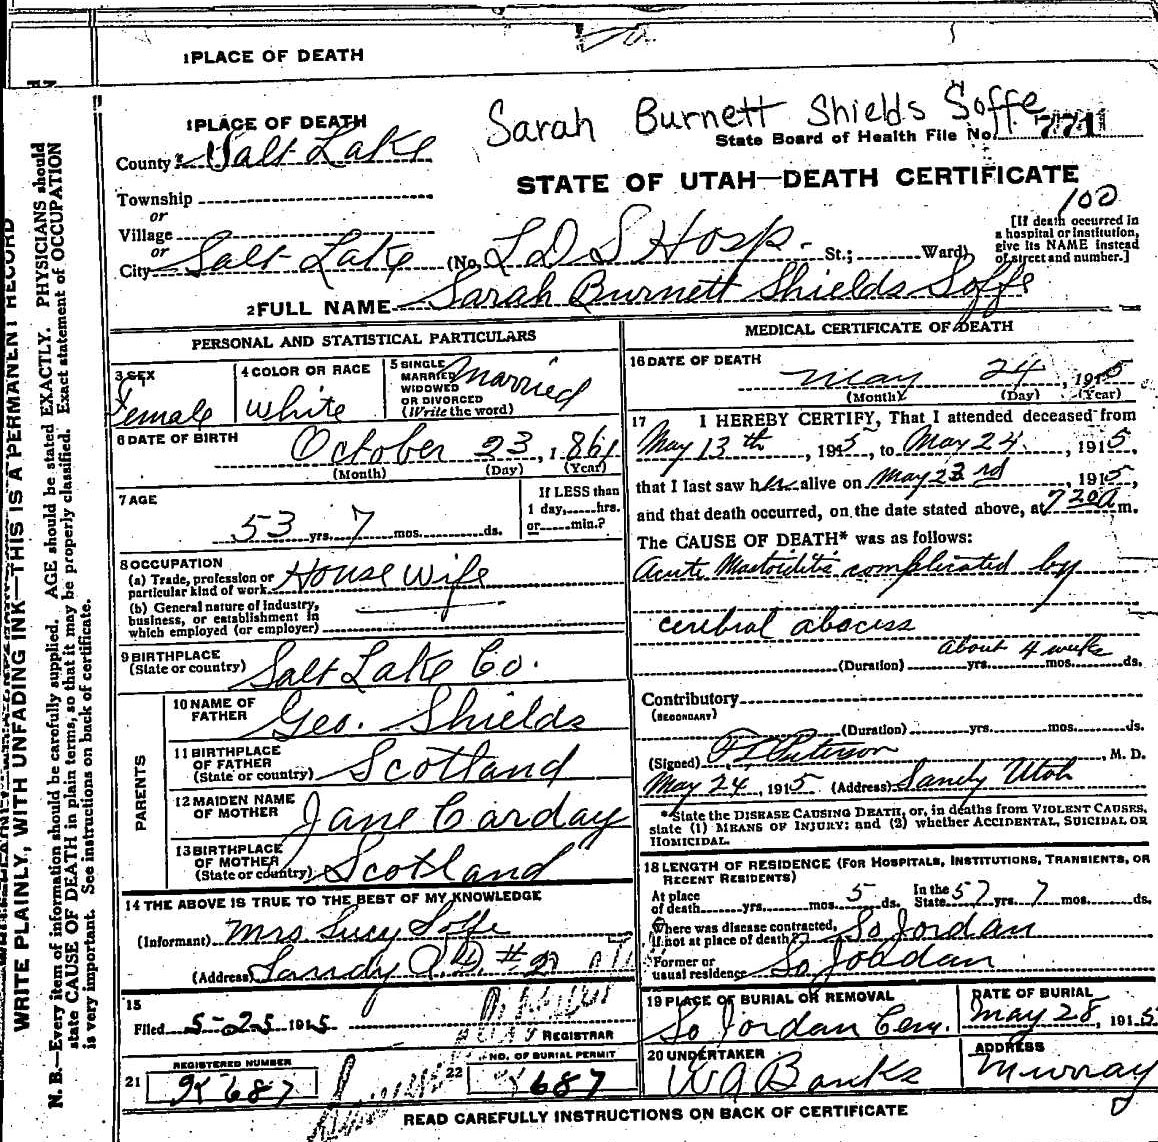 1 PLACE OF DEATH
Sarah Burnett Shields Soffe
1 PLACE OF DEATH
State Board of Health File No. 771
County Salt Lake
STATE OF UTAH—DEATH CERTIFICATE
Township
100
or
Village
or
City Salt Lake (No. L D S Hosp. St.; Ward)
[If death occurred in a hospital or institution, give its NAME instead of street and number.]
2 FULL NAME Sarah Burnett Shields Soffe
PERSONAL AND STATISTICAL PARTICULARS
3 SEX
Female
4 COLOR OR RACE
White
5 SINGLE
MARRIED
WIDOWED
OR DIVORCED
(Write the word)
Married
6 DATE OF BIRTH
October 23, 1861
(Month) (Day) (Year)
7 AGE
53 yrs. 7 mos. ds.
If LESS than
1 day, hrs.
or min.?
8 OCCUPATION
(a) Trade, profession or
particular kind of work House wife
(b) General nature of industry,
business, or establishment in
which employed (or employer)
9 BIRTHPLACE
(State or country) Salt Lake Co.
PARENTS
10 NAME OF
FATHER Geo. Shields
11 BIRTHPLACE
OF FATHER
(State or country) Scotland
12 MAIDEN NAME
OF MOTHER Jane Carday
13 BIRTHPLACE
OF MOTHER
(State or country) Scotland
14 THE ABOVE IS TRUE TO THE BEST OF MY KNOWLEDGE
(Informant) Mrs Lucy Soffe
(Address) Sandy R.D. #2
15
Filed 5-25 1915
REGISTRAR
REGISTERED NUMBER
21 687
NO. OF BURIAL PERMIT
22 687
MEDICAL CERTIFICATE OF DEATH
16 DATE OF DEATH
May 24, 1915
(Month) (Day) (Year)
17 I HEREBY CERTIFY, That I attended deceased from
May 13th, 1915, to May 24, 1915,
that I last saw her alive on May 23rd, 1915,
and that death occurred, on the date stated above, at 7 20 a m.
The CAUSE OF DEATH* was as follows:
Acute Mastoiditis complicated by
cerebral abscess
About 4 weeks
(Duration) yrs. mos. ds.
Contributory
(SECONDARY)
(Duration) yrs. mos. ds.
(Signed) Peterson, M. D.
May 24, 1915 (Address) Sandy Utah
*State the DISEASE CAUSING DEATH, or, in deaths from VIOLENT CAUSES,
state (1) MEANS OF INJURY; and (2) whether ACCIDENTAL, SUICIDAL OR
HOMICIDAL.
18 LENGTH OF RESIDENCE (FOR HOSPITALS, INSTITUTIONS, TRANSIENTS, OR
RECENT RESIDENTS)
At place
of death yrs. mos. 5 ds. In the State 57 yrs. 7 mos. ds.
Where was disease contracted,
if not at place of death? So Jordan
Former or
usual residence So Jordan
19 PLACE OF BURIAL OR REMOVAL
So Jordan Cem.
DATE OF BURIAL
May 28, 1915
20 UNDERTAKER
W A Banks
ADDRESS
Murray
READ CAREFULLY INSTRUCTIONS ON BACK OF CERTIFICATE
WRITE PLAINLY, WITH UNFADING INK—THIS IS A PERMANENT RECORD
N. B.—Every item of information should be carefully supplied. AGE should be stated EXACTLY. PHYSICIANS should
state CAUSE OF DEATH in plain terms, so that it may be properly classified. Exact statement of OCCUPATION
is very important. See instructions on back of certificate.